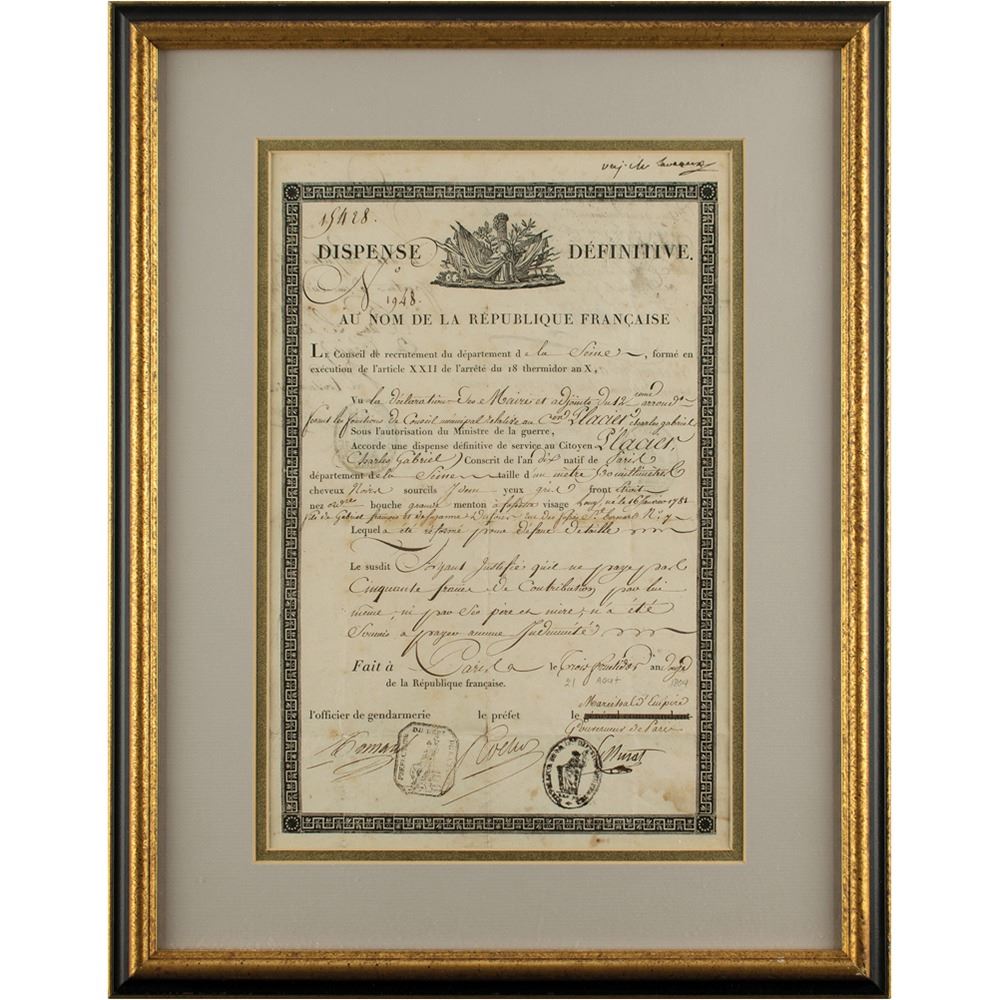 15428.
DISPENSE DÉFINITIVE.
N.º 1948.
AU NOM DE LA RÉPUBLIQUE FRANÇAISE
LE Conseil de recrutement du département de la Seine, formé en
exécution de l'article XXII de l'arrêté du 18 thermidor an X,
Vu la déclaration des Maire et adjoints du 12 eme arrond.
fesant les fonctions de Conseil municipal relative au Con Placier charles gabriel
Sous l'autorisation du Ministre de la guerre,
Accorde une dispense définitive de service au Citoyen Placier,
(Charles Gabriel) Conscrit de l'an dix natif de Paris
département de la Seine taille d'un mètre millimètres
cheveux Noirs sourcils Idem yeux gris front étroit
nez ordre bouche grande menton à fossette visage Long né le 16 Janvier 1782
fils de Gabriel françois et de
Lequel a été réformé pour défaut de taille
Le susdit Ayant Justifié qu'il ne paye pas
Cinquante francs de Contribution par lui
même, ni par Ses père et mère, n'a été
Soumis a payer aucune Indemnité
Fait à Paris le trois fructidor an Douze
de la République française. 21 Aout 1804
Maréchal d'Empire
l'officier de gendarmerie le préfet le
Gouverneur de Paris
Murat